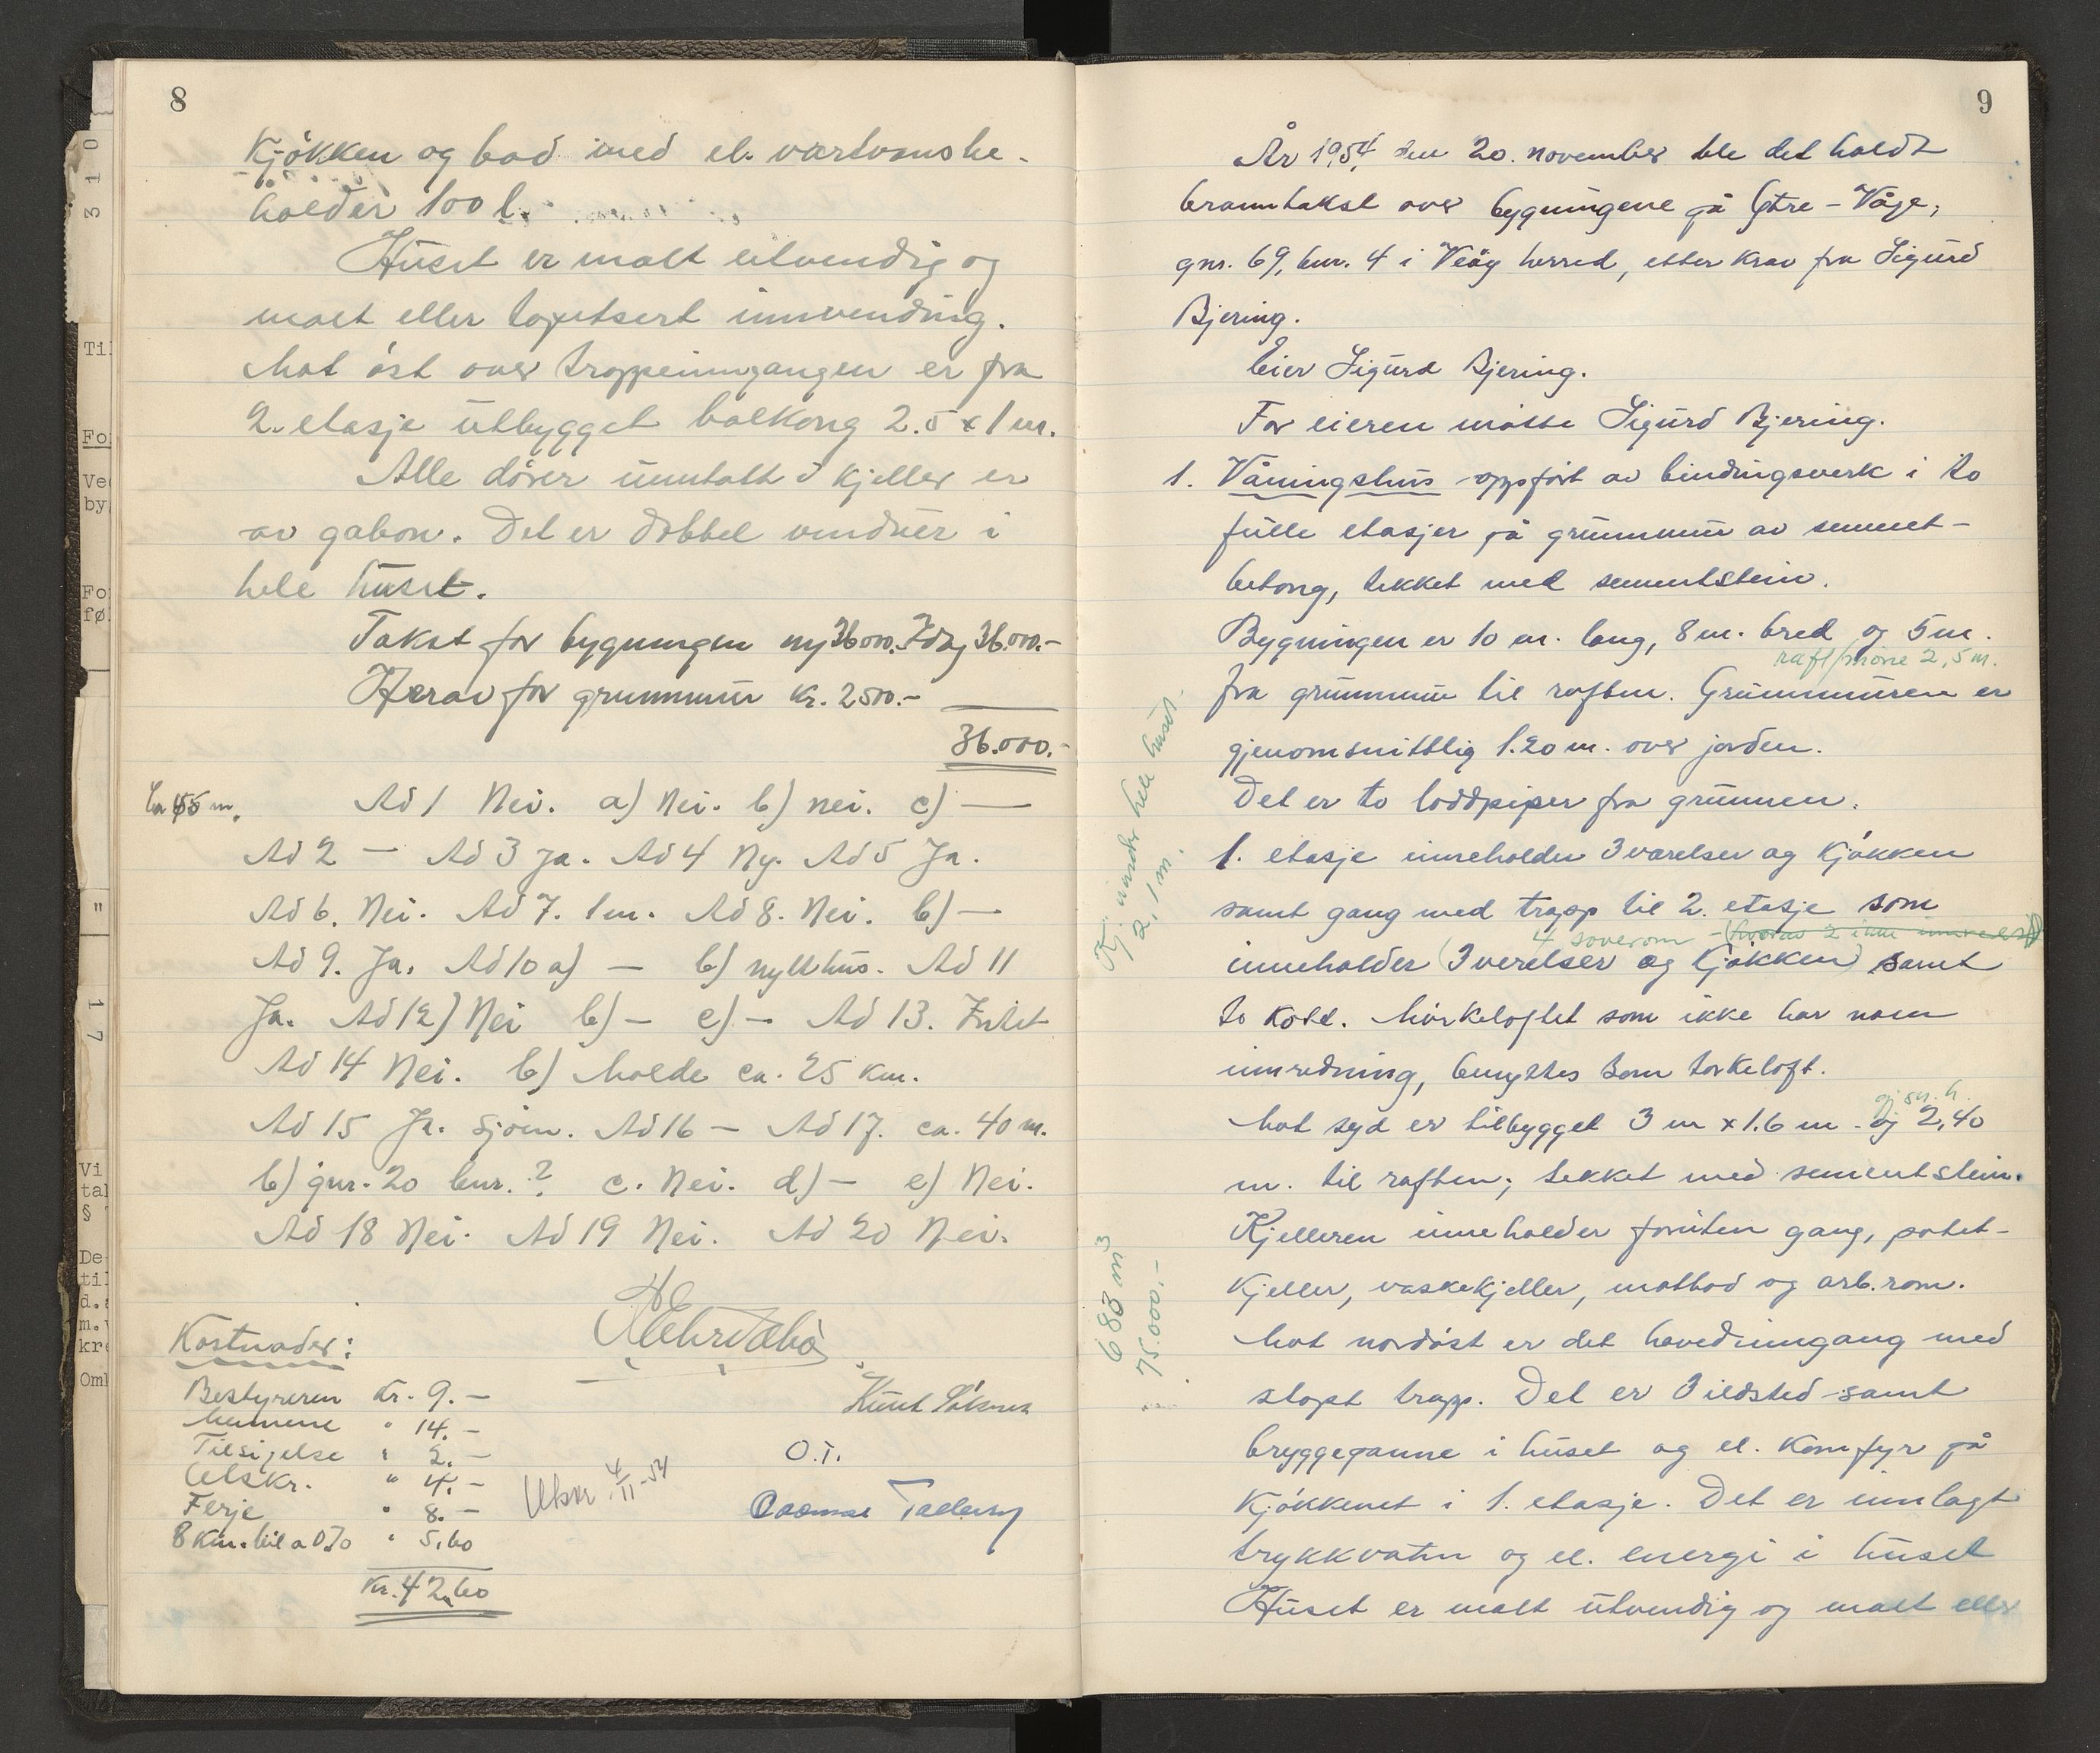 8
Kjøkken og bad med el. vartvannsbe-
holder 100 l.
Huset er malt utvendig og
malt eller tapetsert innvending.
Mot øst over trappeinngangen er fra
2. etasje utbygget balkong 2.5 x 1 m.
Alle dører unntatt i kjeller er
av gabon. Det er dobbel vinduer i
hele huset.
Takst for bygningen ny 36000.- Idag 36.000.-
Herav for grunnmur kr. 2500.-
36.000.-
Ad 1 Nei. a) Nei. b) nei. c) —
Ad 2 — Ad 3 Ja. Ad 4 Ny. Ad 5 Ja.
Ad 6. Nei. Ad 7. 1 m. Ad 8. Nei. b) —
Ad 9. Ja. Ad 10 a) — b) nytt hus. Ad 11
Ja. Ad 12) Nei b) — c) — Ad 13. Intet
Ad 14 Nei. b) Molde ca. 25 km.
Ad 15 Ja. Sjøen. Ad 16 — Ad 17. ca. 40 m.
b) gnr. 20 bnr. ? c. Nei. d) — e) Nei.
Ad 18 Nei. Ad 19 Nei. Ad 20 Nei.
Kostnader:
Bestyreren kr. 9.—
Mennene " 14.—
Tilsigelse " 2.—
Utskr. " 4.—
Ferje " 8.—
8 km. bil a 0.70 " 5,60
kr. 42,60
Utskr. 4/11-54
Knut
O.T.
Rasmus
9
År 1954, den 20. november ble det holdt
branntakst over bygningene på Ytre-Våge,
gnr. 69, bnr. 4 i Veøy herred, etter krav fra Sigurd
Bjering.
Eier Sigurd Bjering.
For eieren møtte Sigurd Bjering.
1. Våningshus oppført av bindingsverk i to
fulle etasjer på grunnmur av sement-
betong, tekket med sementstein.
Bygningen er 10 m. lang, 8 m. bred og 5 m.
raft/møne 2,5 m.
fra grunnmur til raften. Grunnmuren er
gjenomsnittlig 1.20 m. over jorden.
Det er to loddpiper fra grunnen.
1. etasje inneholder 3 værelser og kjøkken
samt gang med trapp til 2. etasje som
4 soverom - (hvorav 2 ikke innredet)
inneholder (3 verelser og kjøkken) samt
to kott. Mørkeloftet som ikke har noen
innredning, benyttes som tørkeloft.
gj.sn.h.
Mot syd er tilbygget 3 m x 1.6 m og 2,40
m. til raften; tekket med sementstein.
Kjelleren inneholder foruten gang, potet-
kjeller, vaskekjeller, matbod og arb.rom.
Mot nordøst er det hovedinngang med
støpt trapp. Det er 3 ildsted samt
bryggepanne i huset og el. komfyr på
kjøkkenet i 1. etasje. Det er innlagt
trykkvatn og el. energi i huset
Huset er malt utvendig og malt eller
Kj. under hele huset.
2,1 m.
683 m³
75.000.-